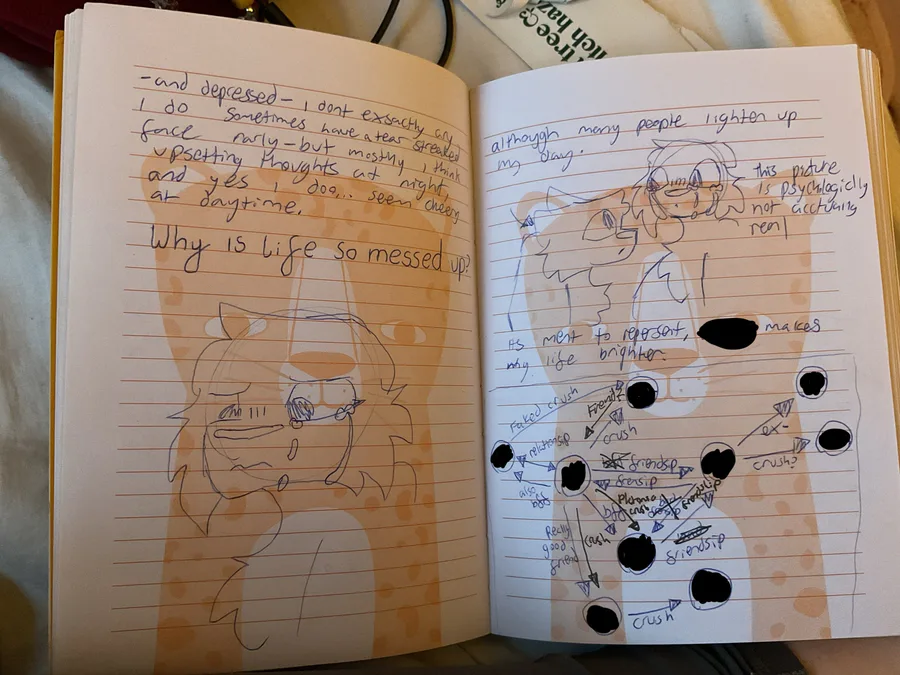 -and depressed- I dont exsactly cry
I do sometimes have a tear streaked
face rarly - but mostly I think
upsetting thoughts at night,
and yes I doo... seem cheery
at daytime.
Why is life so messed up?
tree
tch haz
although many people lighten up
my day.
This picture
is psychologicly
not acctuning
real
its ment to repersent,
makes
my life brighter.
Faked crush
Friends
crush
relationsip
friendsip
frensip
also
bffs
ex-
crush?
Platonic
crush
bffs
gossip
friendship
Really
good
friend
crush
friendsip
crush